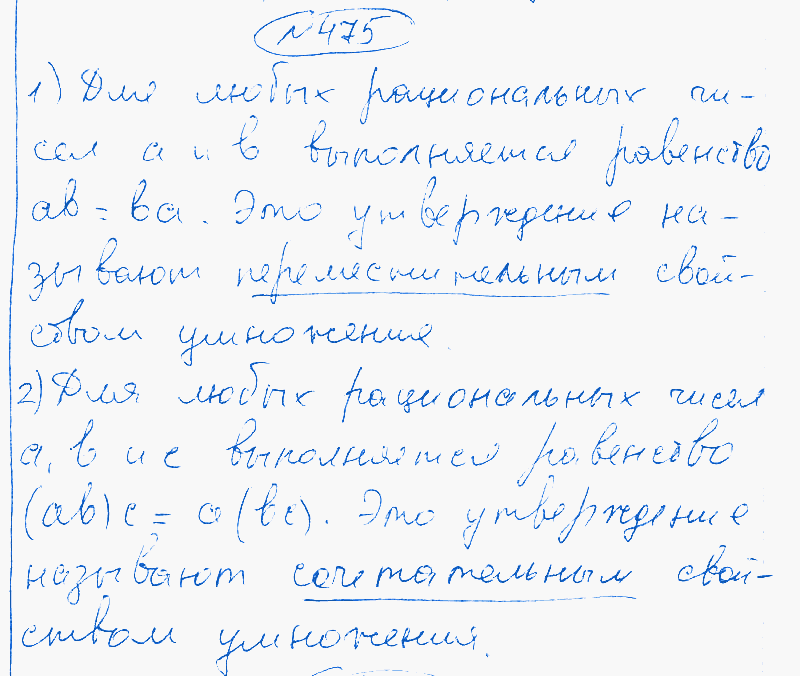 №475
1) Для любых рациональных чи-
сел a и b выполняется равенство
ab = ba. Это утверждение на-
зывают переместительным свой-
ством умножения.
2) Для любых рациональных чисел
a, b и c выполняется равенство
(ab)c = a(bc). Это утверждение
называют сочетательным свой-
ством умножения.